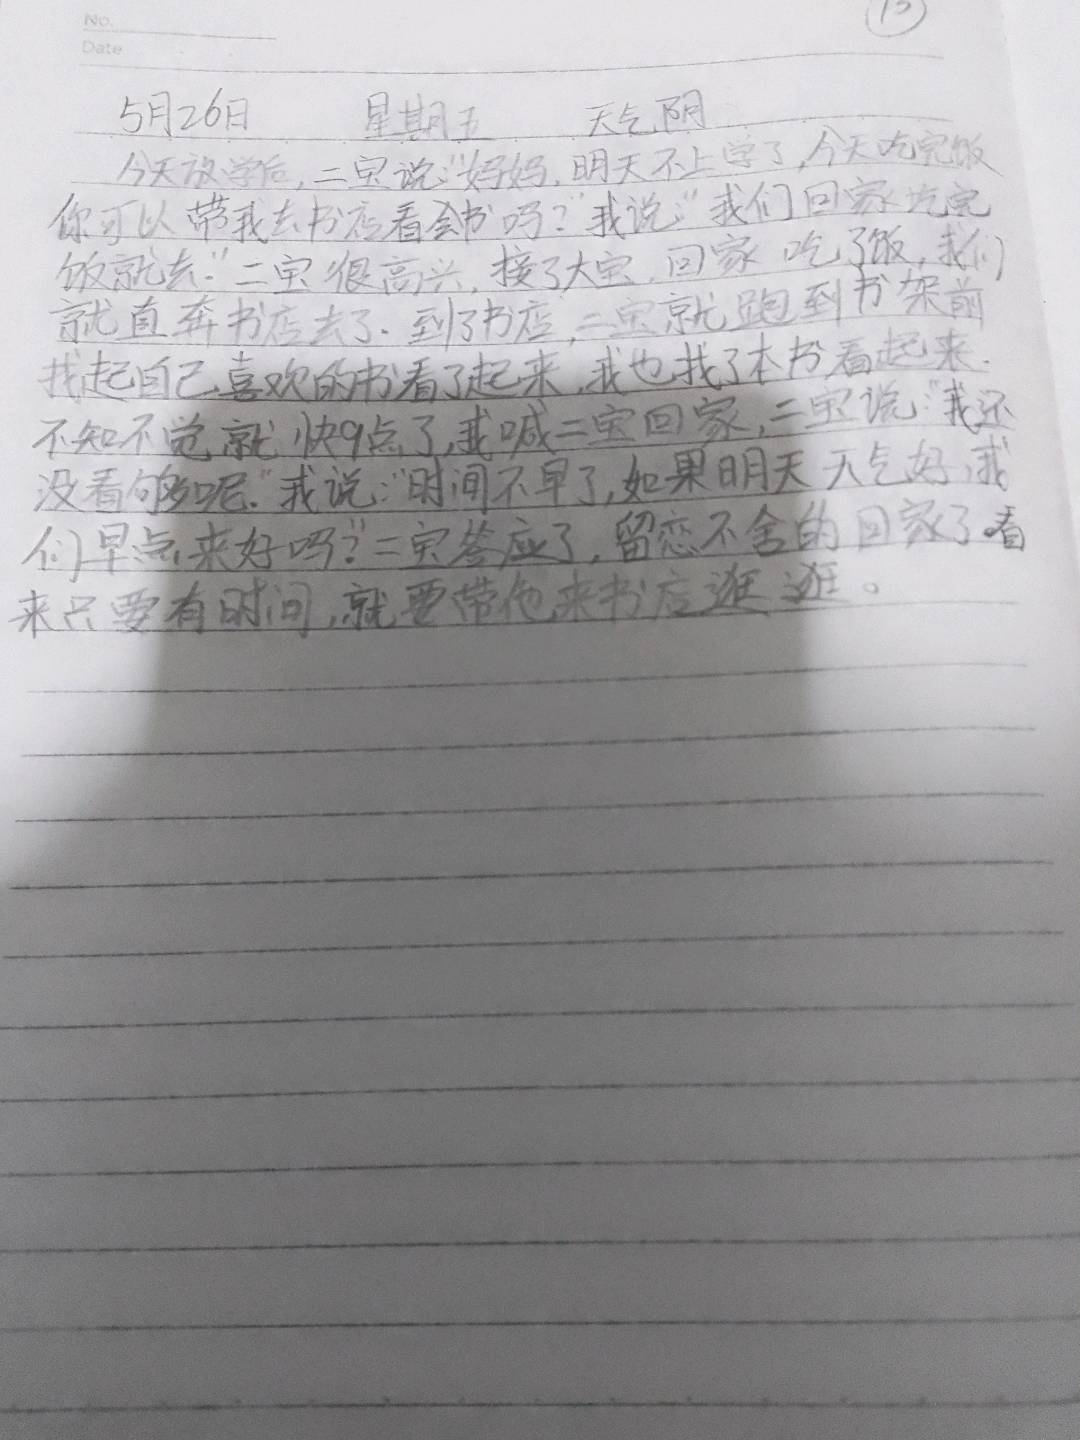 No.
Date
5月26日 星期五 天气阴
今天放学后,二宝说:"妈妈,明天不上学了,今天吃完饭
你可以带我去书店看会书吗?"我说:"我们回家吃完
饭就去."二宝很高兴,接了大宝,回家吃了饭,我们
就直奔书店去了.到了书店,二宝就跑到书架前
找起自己喜欢的书看了起来,我也找了本书看起来.
不知不觉就快9点了,我喊二宝回家,二宝说:"我还
没看够呢."我说:"时间不早了,如果明天天气好,我
们早点来好吗?"二宝答应了,留恋不舍的回家了看
来只要有时间,就要带他来书店逛逛。